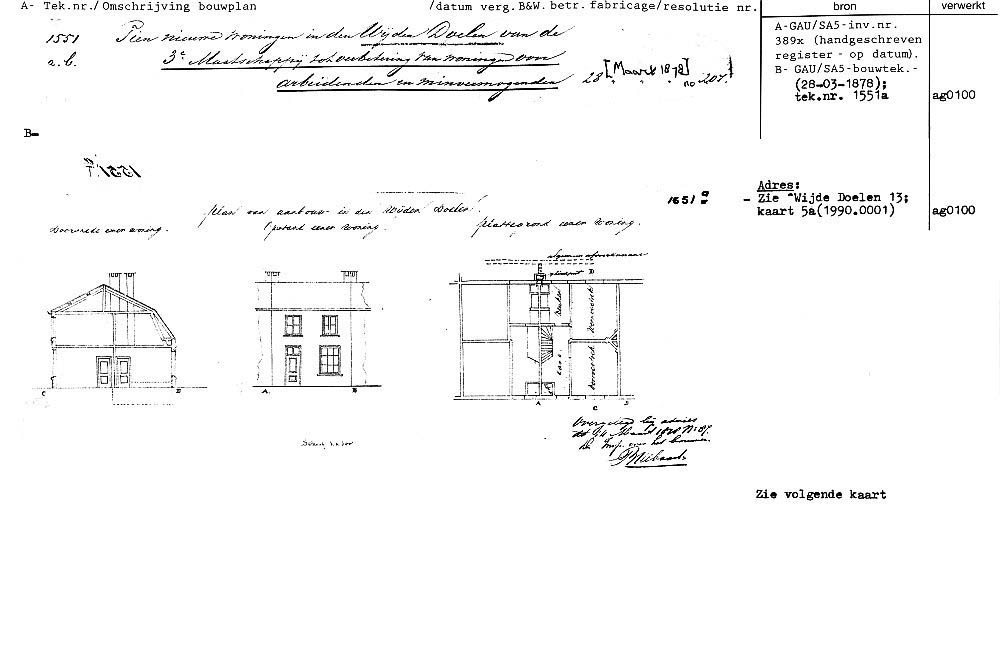 A- Tek.nr./ Omschrijving bouwplan /datum verg. B&W. betr. fabricage/resolutie nr. bron verwerkt
1551 Tien nieuwe woningen in den Wijden Doelen van de
a. b. 3e Maatschappij tot verbetering van woningen voor
arbeidenden en minvermogenden 28 [Maart 1878] no 207.
A-GAU/SA5-inv.nr.
389x (handgeschreven
register - op datum).
B- GAU/SA5-bouwtek.-
(28-03-1878);
tek.nr. 1551a ag0100
B-
1551
1551 a
Adres:
- Zie "Wijde Doelen 13;
kaart 5a(1990.0001) ag0100
plan van aanbouw in den Wijden Doelen.
Doorsnede eener woning. Opstand eener woning. plattegrond eener woning.
D
keuken
C D A. B
A C B
Schaal
Zie volgende kaart